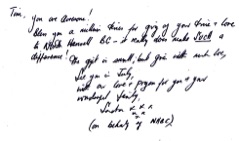 Tom, you are awesome!
Bless you a million times for giving of your time & love
to North Harwell BC - it really does make SUCH a
difference! The gift is small, but given with much love,
See you in July,
with our love & prayers for you & your
wonderful family,
x x x
x x
(on behalf of NHBC)